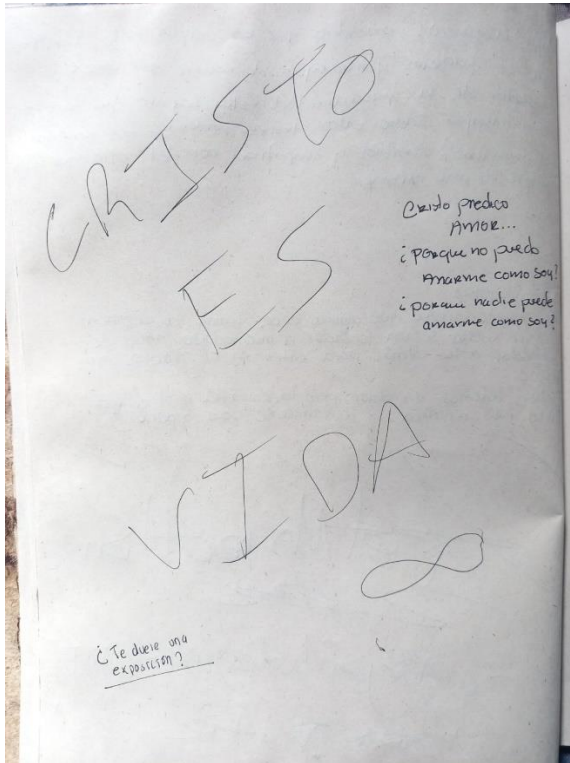 CRISTO
ES
VIDA
Cristo predico
AMOR...
¿porque no puedo
Amarme como soy?
¿porque nadie puede
amarme como soy?
¿Te duele una
exposición?